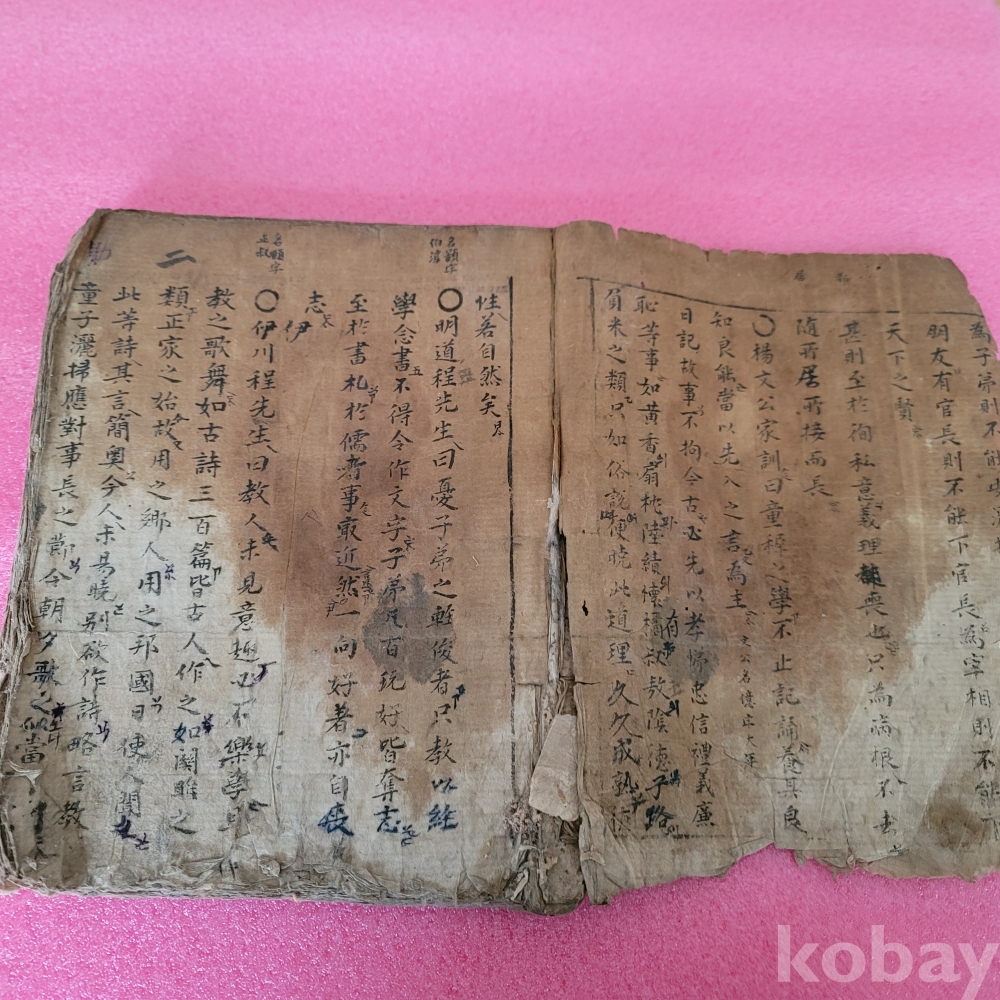 為子弟則不能
朋友有官長則不能下官長為宰相則不能下
天下之賢
甚則至於徇私意義理都喪也只為病根不去
隨所居所接而長
〇楊文公家訓曰童稚之學不止記誦養其良
知良能當以先入之言為主 文公名億字大年
日記故事不拘今古必先以孝悌忠信禮義廉
恥等事如黃香扇枕陸績懷橘叔敖陰德子路
負米之類只如俗說便曉此道理久久成熟德
性若自然矣
名顥字
伯淳
〇明道程先生曰憂子弟之輕俊者只教以經
學念書不得令作文字子弟凡百玩好皆奪志
至於書札於儒者事最近然一向好著亦自喪
志
伊
名頤字
正叔
〇伊川程先生曰教人未見意趣必不樂學
教之歌舞如古詩三百篇皆古人作之如關雎之
二
類正家之始故用之鄉人用之邦國日使人聞之
此等詩其言簡奧今人未易曉別欲作詩略言教
童子灑掃應對事長之節令朝夕歌之似當
kobay